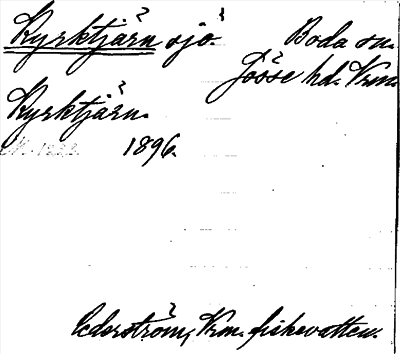 Kyrktjärn sjö. Boda sn.
Jösse hd. Vrm.
Kyrktjärn.
1896.
Cederström, Vrm. fiskevatten.